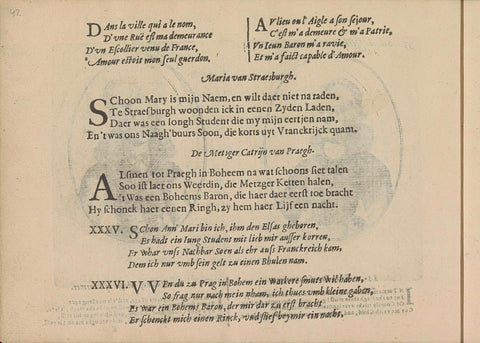 42
DAns la ville qui a le nom,
D'vne Ruë est ma demeurance
D'vn Escollier venu de France,
Amour estoit mon seul guerdon.
AV lieu ou l'Aigle a son sejour,
C'est m'a demeure & m'a Patrie,
Vn Ieun Baron m'a ravie,
Et m'a faict capable d'Amour.
Maria van Straesburgh.
SChoon Mary is mijn Naem, en wilt daer niet na raden,
Te Straesburgh woonden ick in eenen Zyden Laden,
Daer was een Iongh Student die my mijn eert jen nam,
En 't was ons Naagh'buurs Soon, die korts uyt Vranckrijck quam.
De Metzger Catrijn van Praegh.
ALsmen tot Praegh in Boheem na wat schoons siet talen
Soo ist laet ons Weerdin, die Metzger Ketten halen,
't Was een Boheems Baron, die haer daer eerst toe bracht
Hy schonck haer eenen Ringh, zy hem haer Lijf een nacht.
XXXV. SChon Ann' Mari bin ich, ihm den Elsas gheboren,
Er hadt ein Iung Student mit lieb mir ausser korren,
Er whar vnss Nachbar Soen als ehr auss Franckreich kam,
Dem ich nur vmb sein gelt zu einen Bhulen nam.
XXXVI. VVEn du zu Prag in Bohem ein Warkere smuts wil haben,
So frag nur nach mein nham, ich thues vmb kleine gaben,
Es war ein Bohems Baron, der mir dar zu erst bracht
Er schenckt mich einen Rinck, vnd slief bey mir ein nacht.